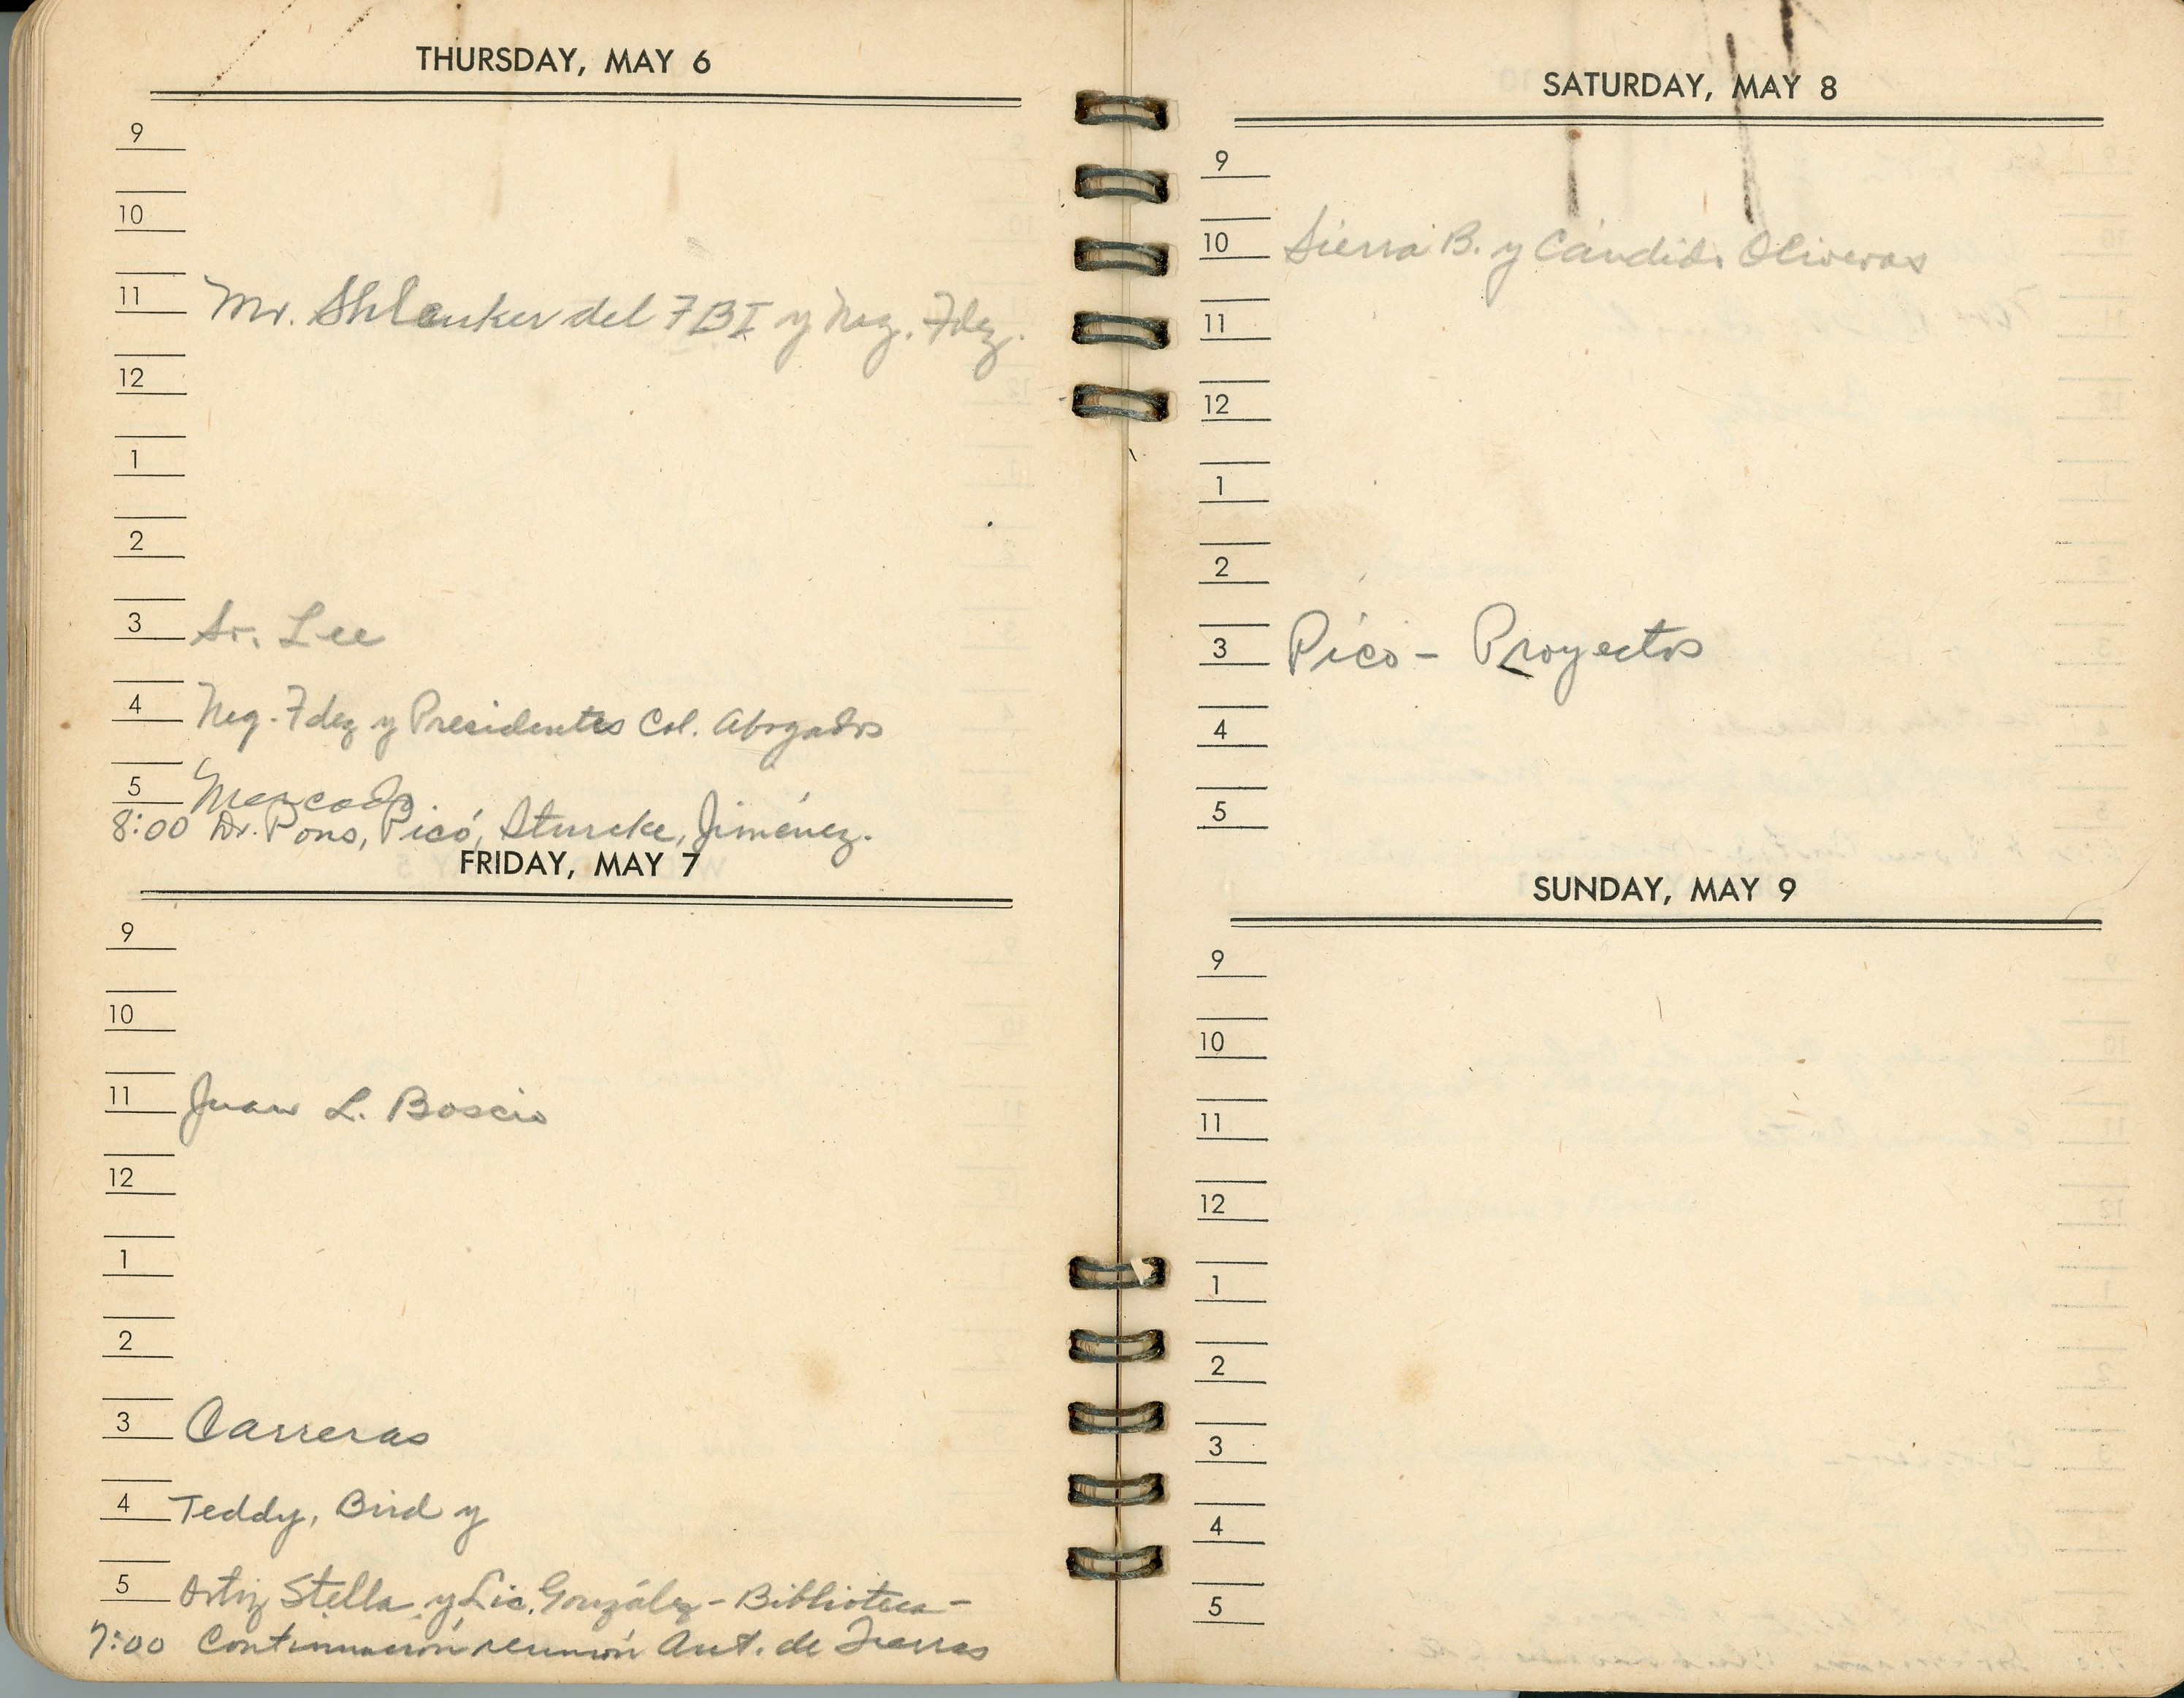 THURSDAY, MAY 6
9
10
11 Mr. Shlenker del FBI y Neg. Fdez.
12
1
2
3 Sr. Lee
4 Neg. Fdez y Presidentes Col. Abogados
5 Mercado
8:00 Dr. Pons, Picó, Sturcke, Jiménez.
FRIDAY, MAY 7
9
10
11 Juan L. Boscio
12
1
2
3 Carreras
4 Teddy, Bird y
5 Ortiz Stella y Lic. González - Biblioteca -
7:00 Continuación reunión Aut. de Tierras
SATURDAY, MAY 8
9
10 Sierra B. y Cándido Oliveras
11
12
1
2
3 Picó - Proyectos
4
5
SUNDAY, MAY 9
9
10
11
12
1
2
3
4
5